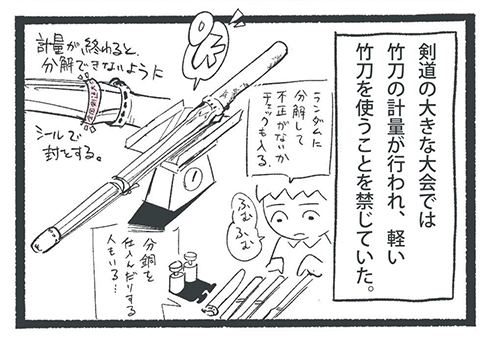 剣道の大きな大会では
竹刀の計量が行われ、軽い
竹刀を使うことを禁じていた。
OK
計量が終わると、
分解できないように
シールで
封とする。
ランダムに
分解して
不正がないか
チェックも入る。
ふむ
ふむ
分銅を
仕入んだりする
人もいる…